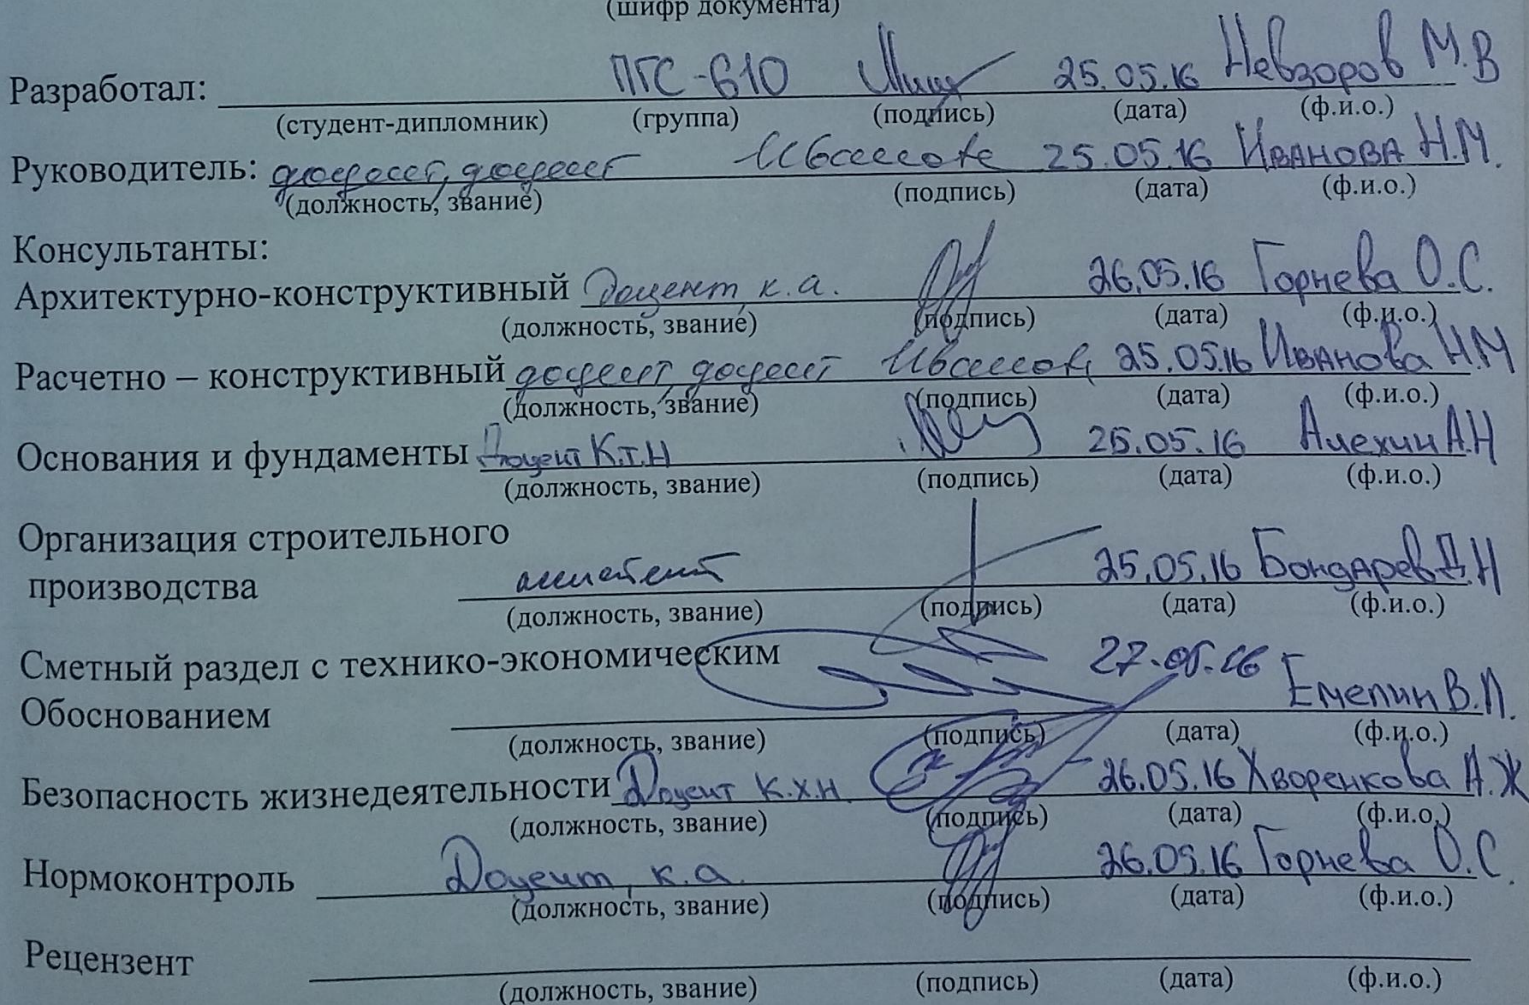 (шифр документа)
Разработал: ПГС-610 25.05.16 Невзоров М.В
(студент-дипломник) (группа) (подпись) (дата) (ф.и.о.)
Руководитель: доцент, доцент Иванова 25.05.16 Иванова Н.М.
(должность, звание) (подпись) (дата) (ф.и.о.)
Консультанты:
Архитектурно-конструктивный доцент, к.а. 26.05.16 Горнева О.С.
(должность, звание) (подпись) (дата) (ф.и.о.)
Расчетно – конструктивный доцент, доцент 25.05.16 Иванова Н.М
(должность, звание) (подпись) (дата) (ф.и.о.)
Основания и фундаменты Доцент К.Т.Н 25.05.16 Алехин А.Н
(должность, звание) (подпись) (дата) (ф.и.о.)
Организация строительного
производства ассистент 25.05.16 Бондарев Д.Н
(должность, звание) (подпись) (дата) (ф.и.о.)
Сметный раздел с технико-экономическим 27.05.16
Обоснованием Емелин В.П.
(должность, звание) (подпись) (дата) (ф.и.о.)
Безопасность жизнедеятельности Доцент К.Х.Н. 26.05.16 Хворенкова А.Ж
(должность, звание) (подпись) (дата) (ф.и.о.)
Нормоконтроль Доцент, к.а. 26.05.16 Горнева О.С.
(должность, звание) (подпись) (дата) (ф.и.о.)
Рецензент
(должность, звание) (подпись) (дата) (ф.и.о.)